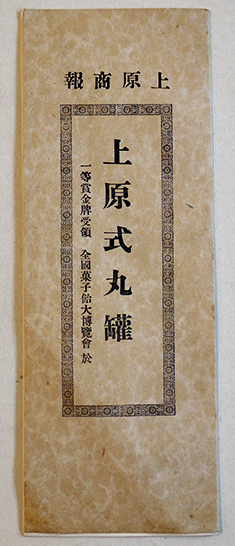 上原商報
上原式丸罐
全國菓子飴大博覽會 於
一等賞金牌受領